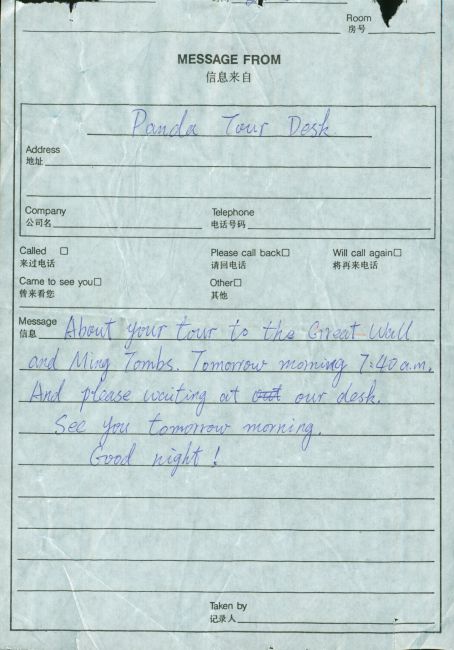 Room
房号
MESSAGE FROM
信息来自
Panda Tour Desk
Address
地址
Company Telephone
公司名 电话号码
Called □ Please call back□ Will call again□
来过电话 请回电话 将再来电话
Came to see you□ Other□
曾来看您 其他
Message
信息
About your tour to the Great Wall
and Ming Tombs. Tomorrow morning 7:40 a.m.
And please waiting at out our desk.
See you tomorrow morning.
Good night!
Taken by
记录人